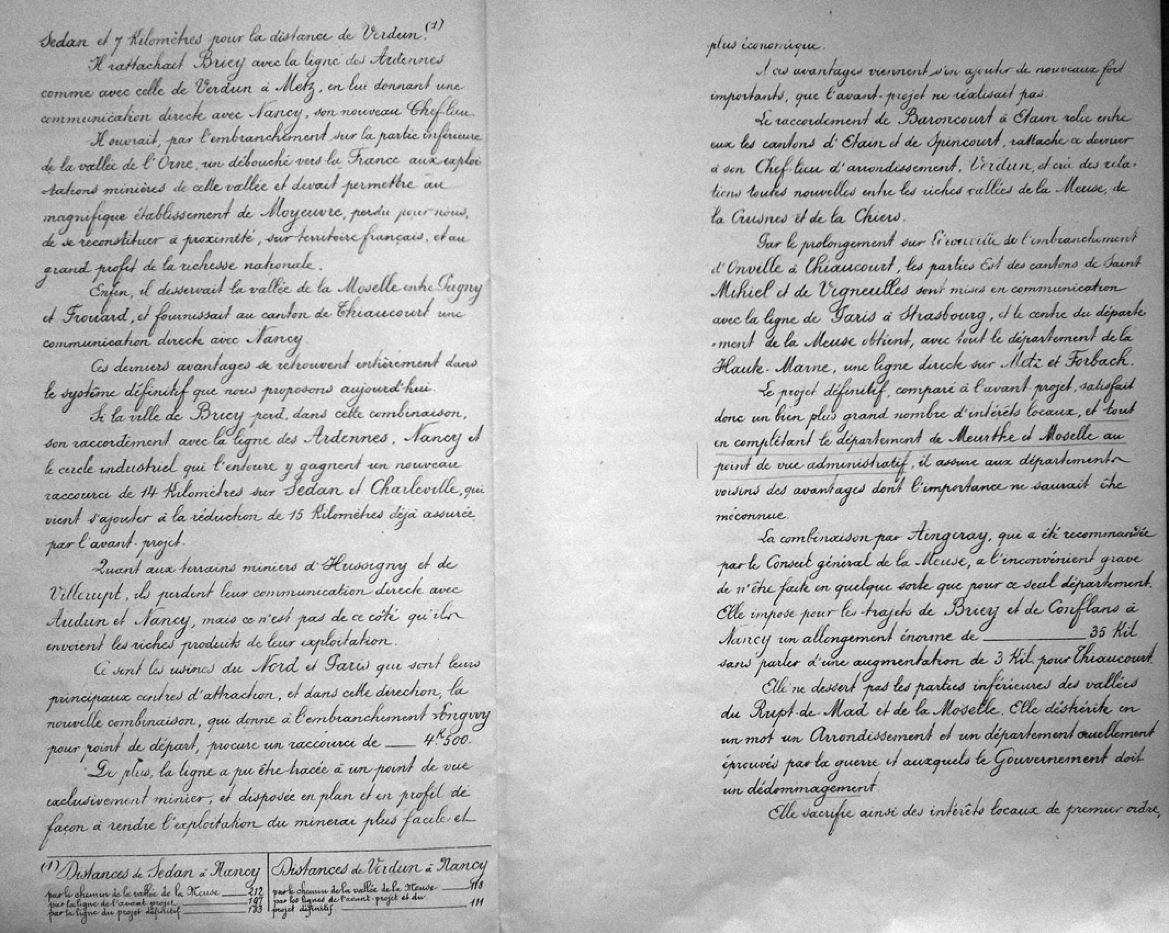 Sedan et 7 Kilomètres pour la distance de Verdun. (1)
Il rattachait Briey avec la ligne des Ardennes
comme avec celle de Verdun à Metz, en lui donnant une
communication directe avec Nancy, son nouveau Chef-lieu.
Il ouvrait, par l'embranchement sur la partie inférieure
de la vallée de l'Orne, un débouché vers la France aux exploi-
tations minières de cette vallée et devait permettre au
magnifique établissement de Moyeuvre, perdu pour nous,
de se reconstituer à proximité, sur territoire français, et au
grand profit de la richesse nationale.
Enfin, il desservait la vallée de la Moselle entre Pagny
et Frouard, et fournissait au canton de Thiaucourt une
communication directe avec Nancy.
Ces derniers avantages se retrouvent entièrement dans
le système définitif que nous proposons aujourd'hui.
Si la ville de Briey perd, dans cette combinaison,
son raccordement avec la ligne des Ardennes, Nancy et
le cercle industriel qui l'entoure y gagnent un nouveau
raccourci de 14 Kilomètres sur Sedan et Charleville, qui
vient s'ajouter à la réduction de 15 Kilomètres déjà assurée
par l'avant-projet.
Quant aux terrains miniers d'Hussigny et de
Villerupt, ils perdent leur communication directe avec
Audun et Nancy, mais ce n'est pas de ce côté qu'ils
envoient les riches produits de leur exploitation.
Ce sont les usines du Nord et Paris qui sont leurs
principaux centres d'attraction, et dans cette direction, la
nouvelle combinaison, qui donne à l'embranchement Longwy
pour point de départ, procure un raccourci de ___ 4K500.
De plus, la ligne a pu être tracée à un point de vue
exclusivement minier, et disposée en plan et en profil de
façon à rendre l'exploitation du minerai plus facile et
(1) Distances de Sedan à Nancy
par le chemin de la vallée de la Meuse ___ 212
par la ligne de l'avant projet ___ 197
par la ligne du projet définitif ___ 183
Distances de Verdun à Nancy
par le chemin de la vallée de la Meuse ___ 118
par les lignes de l'avant-projet et du
projet définitif ___ 111
plus économique.
A ces avantages viennent s'en ajouter de nouveaux fort
importants, que l'avant-projet ne réalisait pas.
Le raccordement de Baroncourt à Etain relie entre
eux les cantons d'Etain et de Spincourt, rattache ce dernier
à son Chef-lieu d'arrondissement, Verdun, et crée des rela-
tions toutes nouvelles entre les riches vallées de la Meuse, de
la Crusnes et de la Chiers.
Par le prolongement sur Lérouville de l'embranchement
d'Onville à Thiaucourt, les parties Est des cantons de Saint
Mihiel et de Vigneulles sont mises en communication
avec la ligne de Paris à Strasbourg, et le centre du départe-
-ment de la Meuse obtient, avec tout le département de la
Haute-Marne, une ligne directe sur Metz et Forbach.
Le projet définitif, comparé à l'avant projet, satisfait
donc un bien plus grand nombre d'intérêts locaux, et tout
en complétant le département de Meurthe et Moselle au
point de vue administratif, il assure aux départements
voisins des avantages dont l'importance ne saurait être
méconnue.
La combinaison par Aingeray, qui a été recommandée
par le Conseil général de la Meuse, a l'inconvénient grave
de n'être faite en quelque sorte que pour ce seul département.
Elle impose pour les trajets de Briey et de Conflans à
Nancy un allongement énorme de ___ 35 Kil
sans parler d'une augmentation de 3 Kil. pour Thiaucourt.
Elle ne dessert pas les parties inférieures des vallées
du Rupt-de-Mad et de la Moselle. Elle déshérite en
un mot un Arrondissement et un département cruellement
éprouvés par la guerre et auxquels le Gouvernement doit
un dédommagement.
Elle sacrifie ainsi des intérêts locaux de premier ordre,